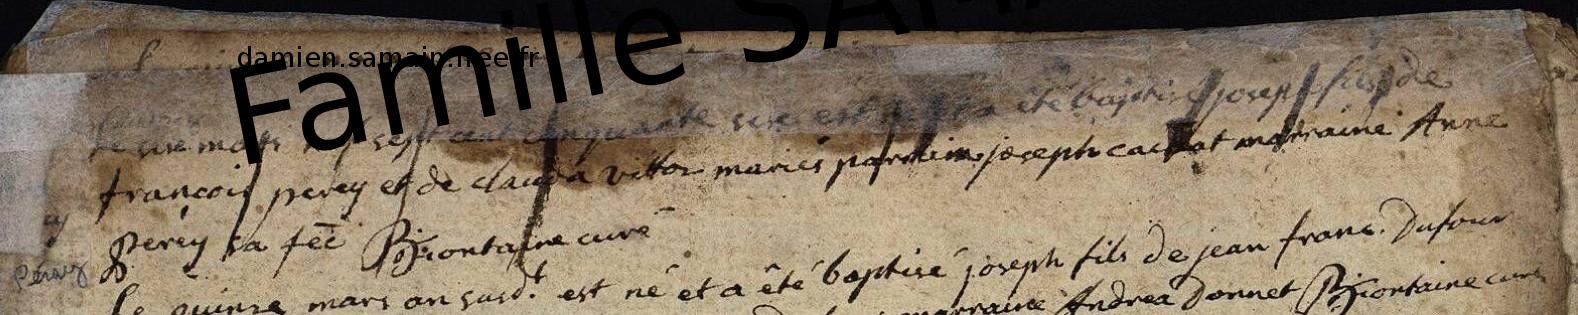 damien.samain.free.fr
Famille SAMA
Le six mars mil sept cent cinquante six est né et a été baptisé joseph fils de
francois perey et de clauda vittoz mariés parrain joseph cachat marraine Anne
perey sa fe͞e Biontaine curé
perey
Le quinze mars an susd.t est né et a été baptisé joseph fils de jean franc. Dufour
marraine Andrea Donnet Biontaine curé